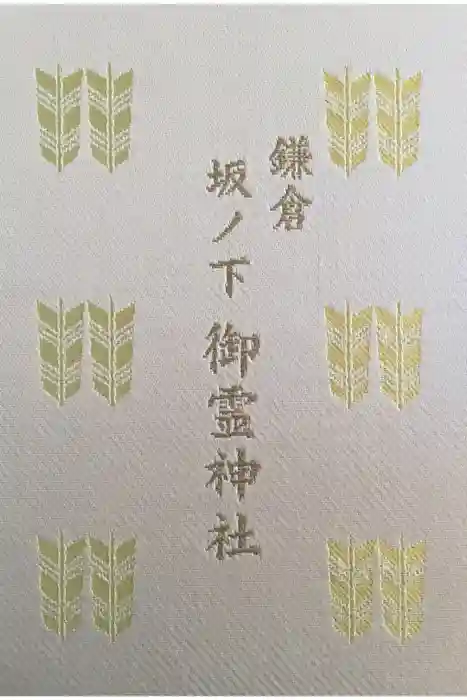 鎌倉
坂ノ下 御霊神社